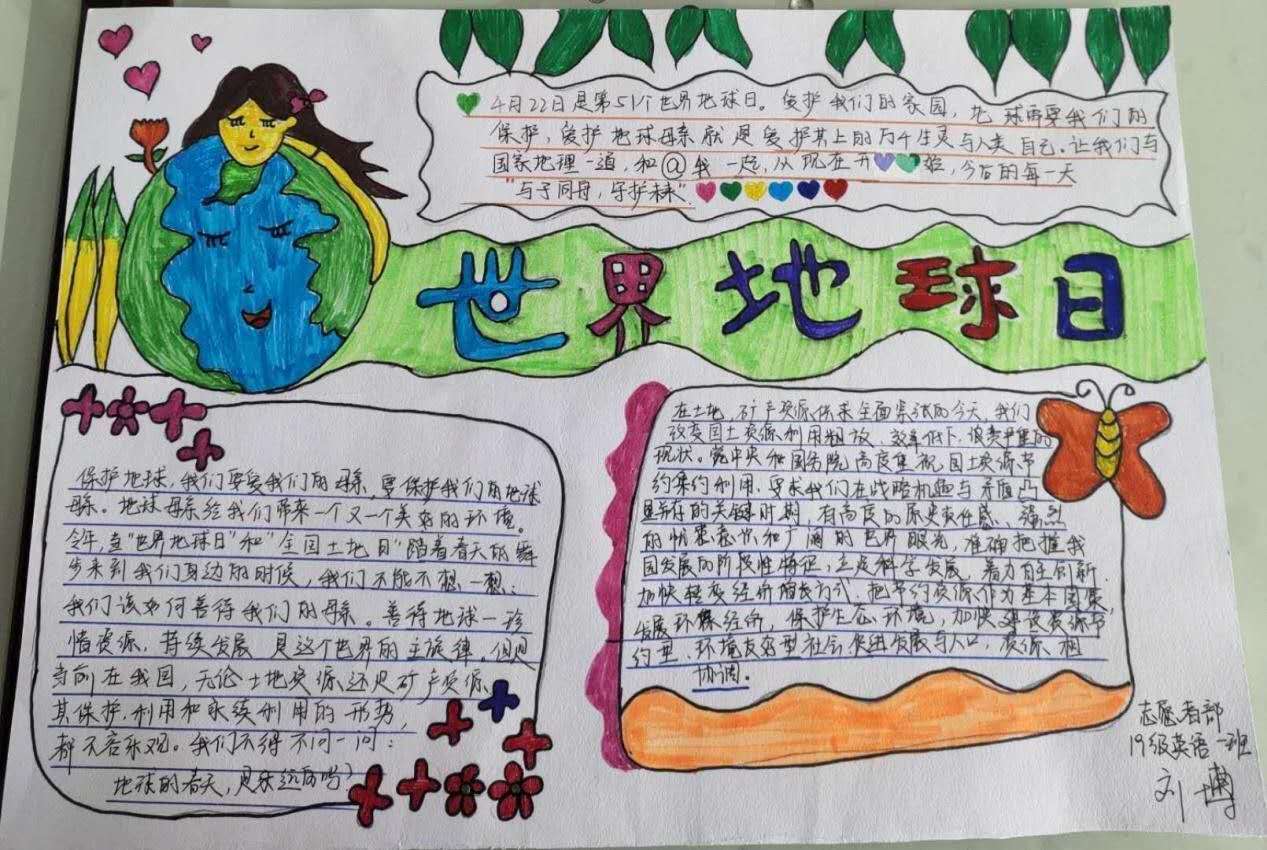 4月22日是第51个世界地球日。爱护我们的家园，地球需要我们的
保护，爱护地球母亲就是爱护其上的万千生灵与人类自己。让我们与
国家地理一道，和@我一起，从现在开始，今后的每一天
"与子同母，守护未来"
世界地球日
保护地球，我们要爱我们的母亲，要保护我们的地球
母亲。地球母亲给我们带来一个又一个美好的环境。
今年，当"世界地球日"和"全国土地日"踏着春天的脚
步来到我们身边的时候，我们不能不想一想：
我们该如何善待我们的母亲。善待地球一珍
惜资源，持续发展，是这个世界的主旋律。但是
当前在我国，无论土地资源还是矿产资源
其保护，利用和永续利用的形势，
都不容乐观。我们不得不问一问：
地球的春天，是永远的吗？
在土地、矿产资源供求全面紧张的今天，我们
改变国土资源利用粗放、效率低下、浪费严重的
现状。党中央和国务院高度重视国土资源节
约集约利用，要求我们在战略机遇与矛盾凸
显并存的关键时期，有高度的历史责任感、强烈
的忧患意识和广阔的世界眼光，准确把握我
国发展的阶段性特征，立足科学发展，着力自主创新，
加快转变经济增长方式，把节约资源作为基本国策，
发展循环经济，保护生态环境，加快建设资源节
约型、环境友好型社会，促进发展与人口，资源、相
协调。
志愿者部
19级英语一班
刘博